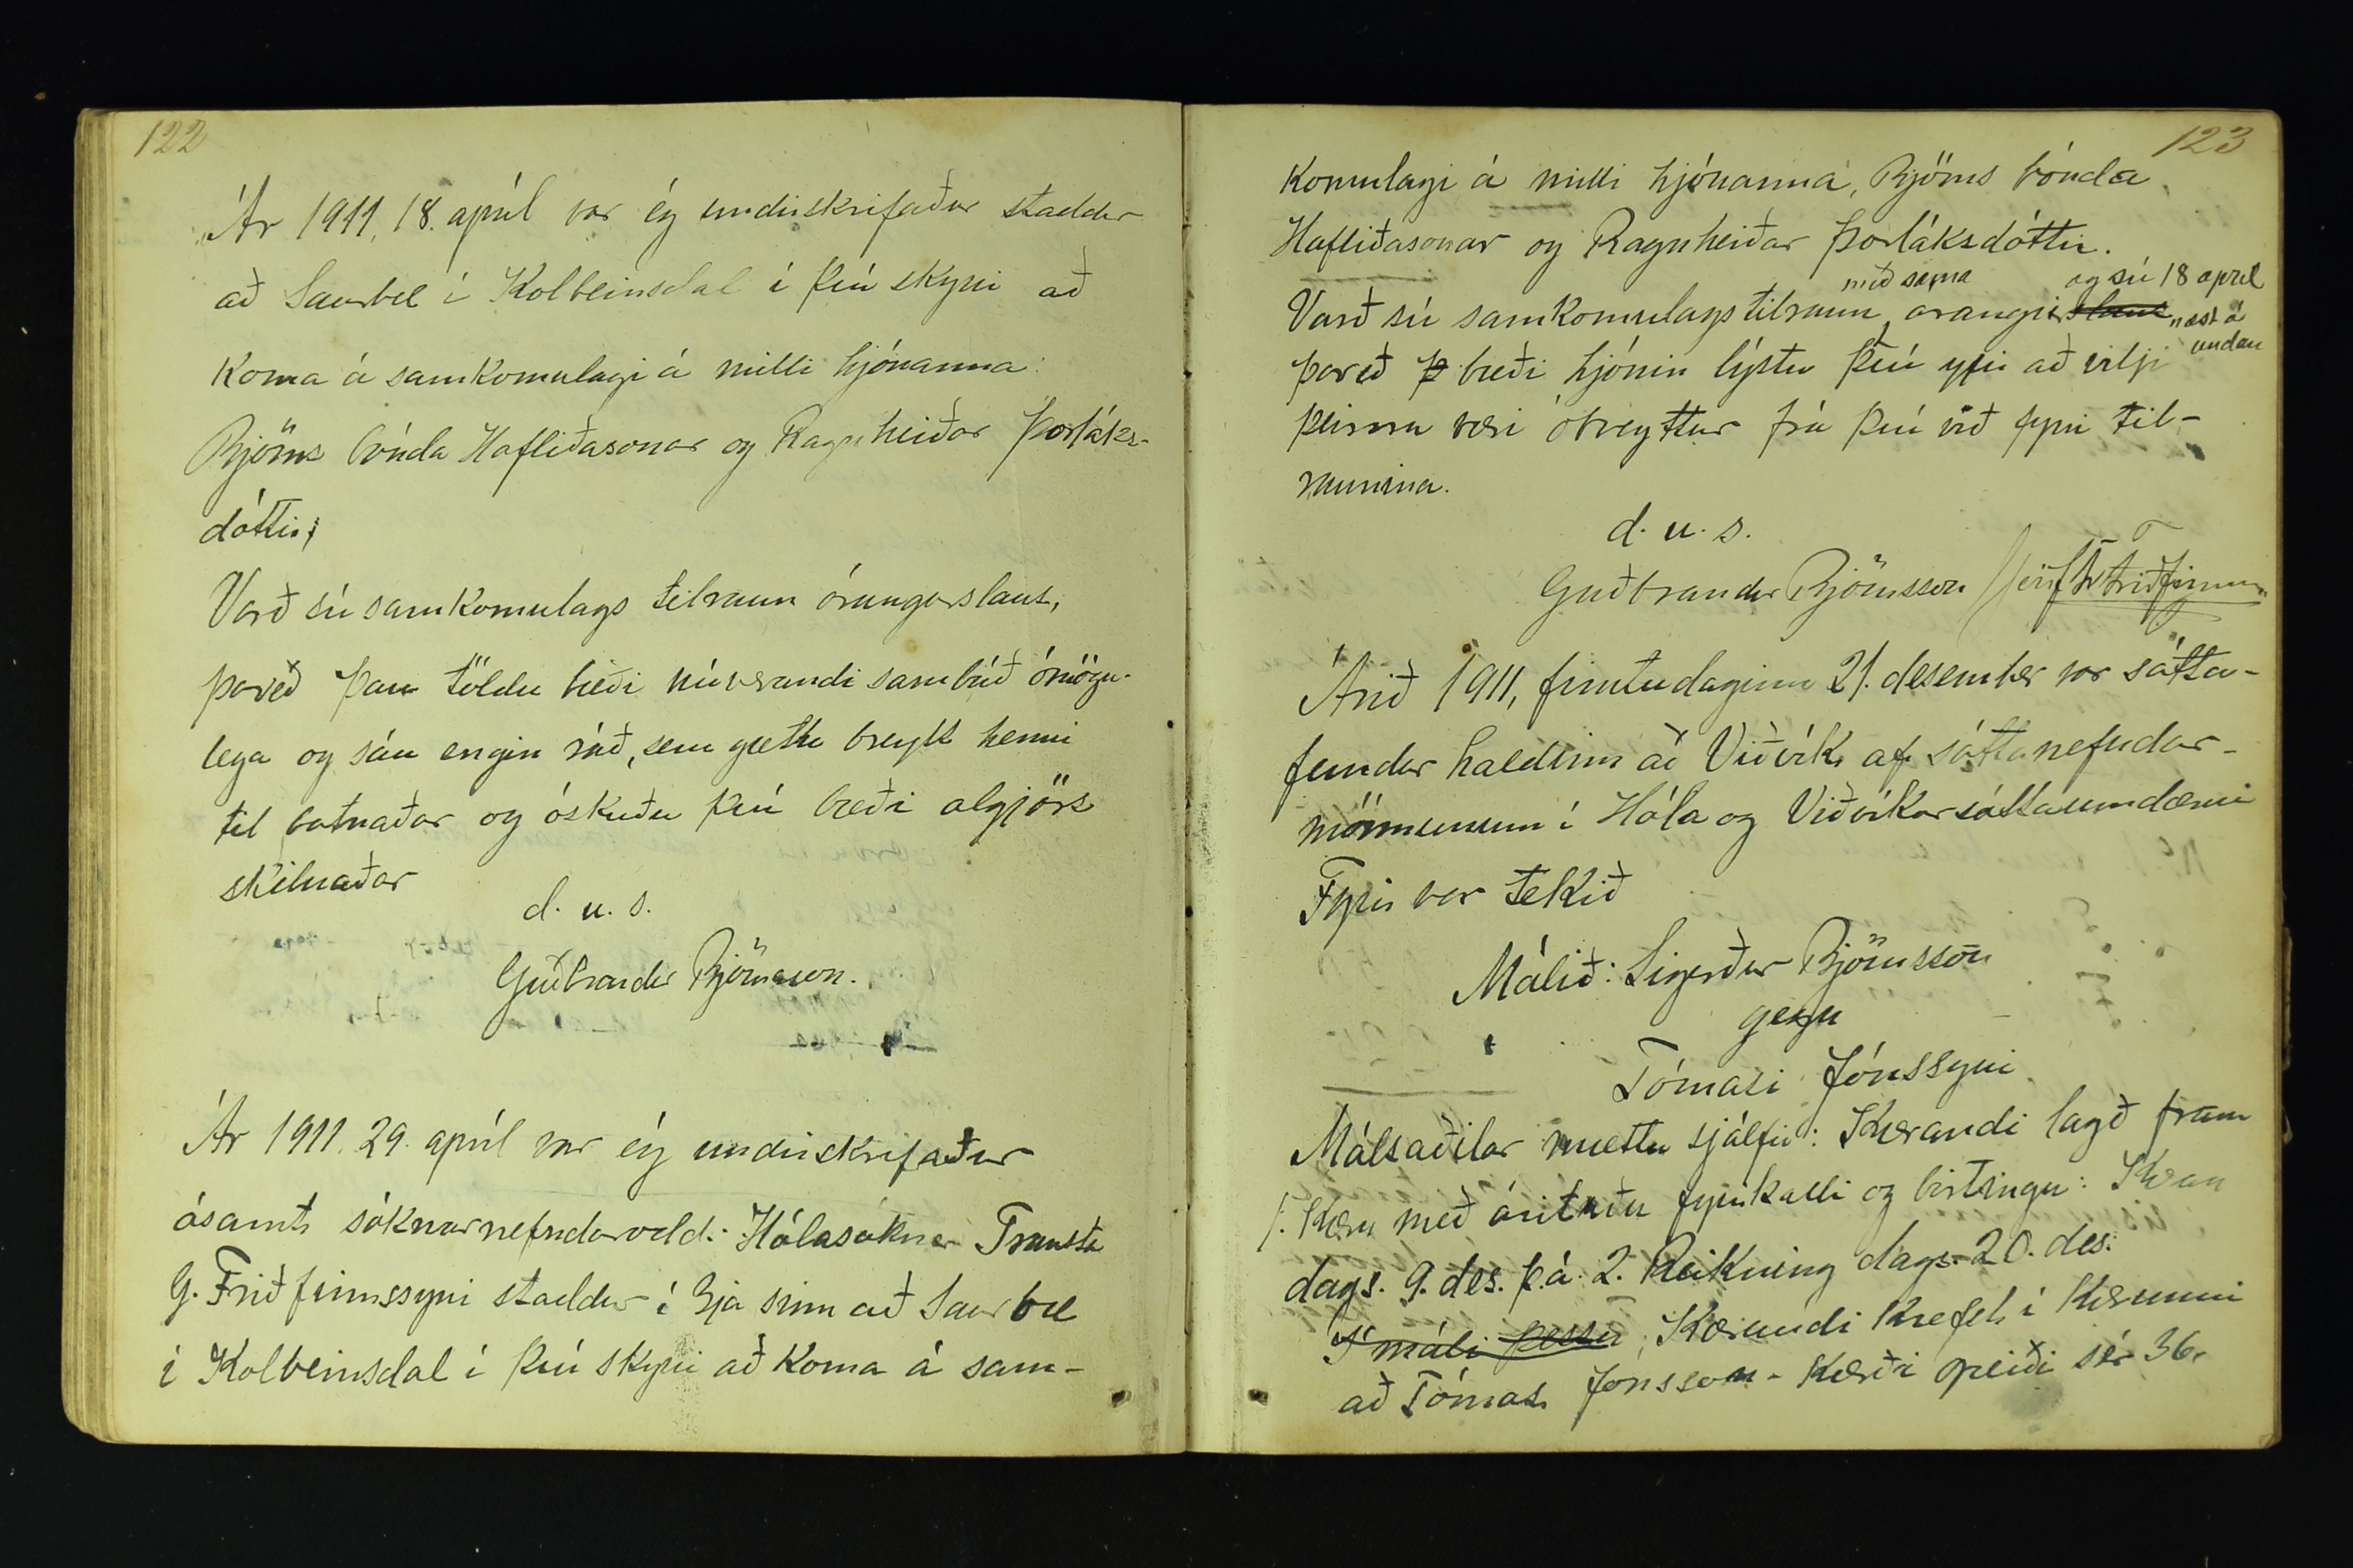 122
Ár 1911, 18. apríl var ég undirskrifaður staddur
að Saurbæ í Kolbeinsdal í því skyni að
koma á samkomulagi á milli hjónanna:
Björns bónda Hafliðasonar og Ragnheiðar Þorláks-
dóttir,
Varð sú samkomulags tilraun árangurslaus,
þareð þau töldu bæði núverandi sambúð ómögu-
lega og sáu engin ráð, sem gætu breytt henni
til batnaðar og óskuðu því bæði algjörs
skilnaðar
d. u. s.
Guðbrandur Björnsson.
Ár 1911. 29. apríl var ég undirskrifaður
ásamt sóknarnefndarodd. Hólasóknar Trausta
G. Friðfinnssyni staddur í 3ja sinn að Saurbæ
í Kolbeinsdal í því skyni að koma á sam-
123
komulagi á milli hjónanna, Björns bónda
Hafliðasonar og Ragnheiðar Þorláksdóttir.
með sama og sú 18 apríl
Varð sú samkomulagstilraun, árangri slaus næst á
undan
þareð þ bæði hjónin lýstu því yfir að vilji
þeirra væri óbreyttur frá því við fyrri til-
raunina.
d. u. s.
Guðbrandur Björnsson
Árið 1911, fimtudaginn 21. desember var sátta-
fundur haldinn að Viðvík af sáttanefndar-
mönnunum í Hóla og Viðvíkursáttaumdæmi
Fyrir var tekið
Málið: Sigurður Björnsson
gegn
Tómasi Jónssyni
Málsaðilar mættu sjálfir: Kærandi lagð fram
1. Kæru með árituðu fyrirkalli og birtingu: Kæran
dags. 9. des. þ.á. 2. Reikning dags. 20. des.
Í máli þessu Kærandi krefst í kærunni
að Tómas Jónsson - kærði greiði sér 36.